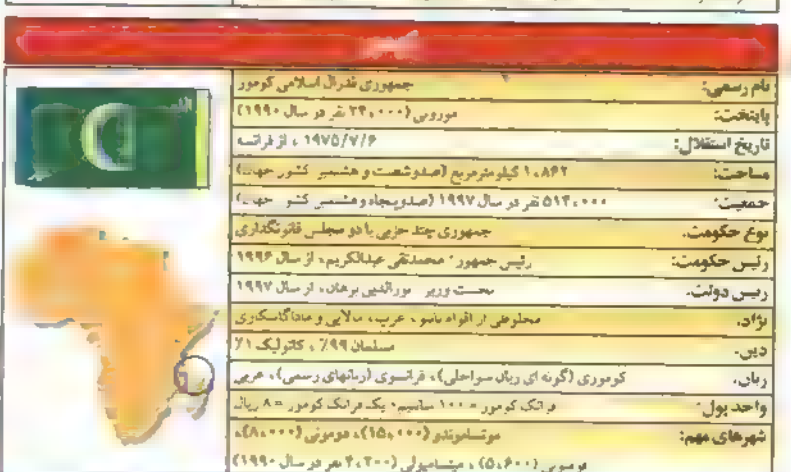 نام رسمی: جمهوری فدرال اسلامی کومور
پایتخت: مورونی (۲۳،۰۰۰ نفر در سال ۱۹۹۰)
تاریخ استقلال: ۱۹۷۵/۷/۶ ، از فرانسه
مساحت: ۱،۸۶۲ کیلومترمربع (صدوشصت و هشتمین کشور جهان)
جمعیت: ۵۱۴،۰۰۰ نفر در سال ۱۹۹۷ (صدوپنجاه وهشتمین کشور جهان)
نوع حکومت: جمهوری چند حزبی با دو مجلس قانونگذاری
رئیس حکومت: رئیس جمهور: محمدتقی عبدالکریم، از سال ۱۹۹۶
رئیس دولت: نخست وزیر نورالدین برهان، از سال ۱۹۹۷
نژاد: مخلوطی از اقوام بانتو، عرب، مالایی و ماداگاسکاری
دین: مسلمان ۹۹٪ ، کاتولیک ۱٪
زبان: کوموری (گونه ای زبان سواحلی)، فرانسوی (زبانهای رسمی)، عربی
واحد پول: فرانک کومور = ۱۰۰ سانتیم، یک فرانک کومور = ۸ ریال
شهرهای مهم: موتسامودو (۱۵،۰۰۰)، دومونی (۸،۰۰۰)،
فومبونی (۵،۶۰۰) ، میتسامیولی (۴،۲۰۰ نفر در سال ۱۹۹۰)